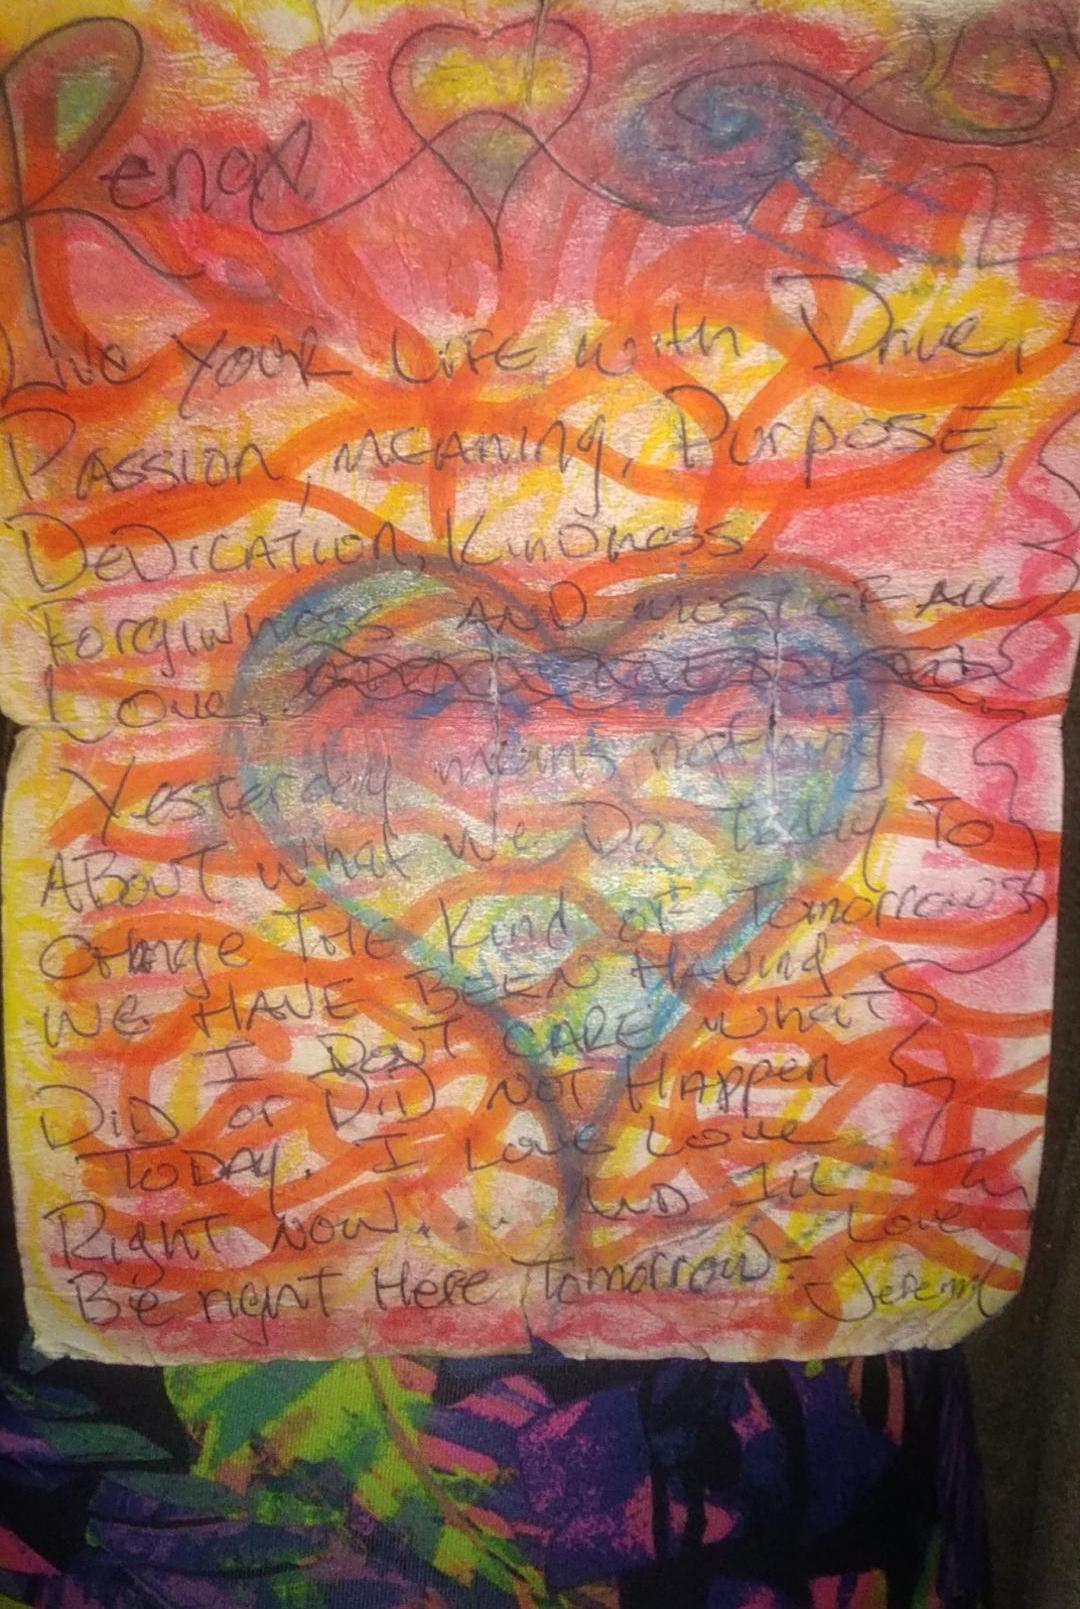 Rena
Live YOUR LIFE with Drive,
PASSION, MEANING, PURPOSE,
DEDICATION, KINDNESS,
FORGIVNNESS AND MOST OF ALL
Love.
Yesterday means nothing
ABOUT what we Do Today To
CHANGE THE Kind of Tomorrows
WE HAVE BEEN HAVING
I DON'T CARE WHAT
DID or DID NOT HAPPEN
TODAY. I Love Love
Right now.... AND Ill
Be right Here Tomorrow - Love
Jeremy